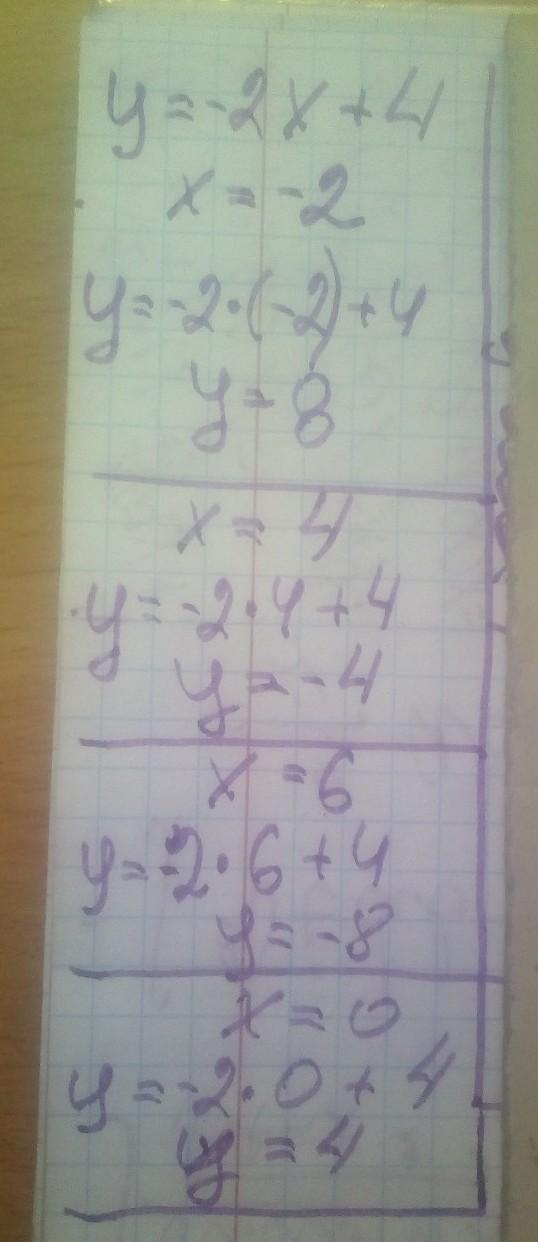 y = -2x + 4
x = -2
y = -2·(-2) + 4
y = 8
x = 4
y = -2·4 + 4
y = -4
x = 6
y = -2·6 + 4
y = -8
x = 0
y = -2·0 + 4
y = 4